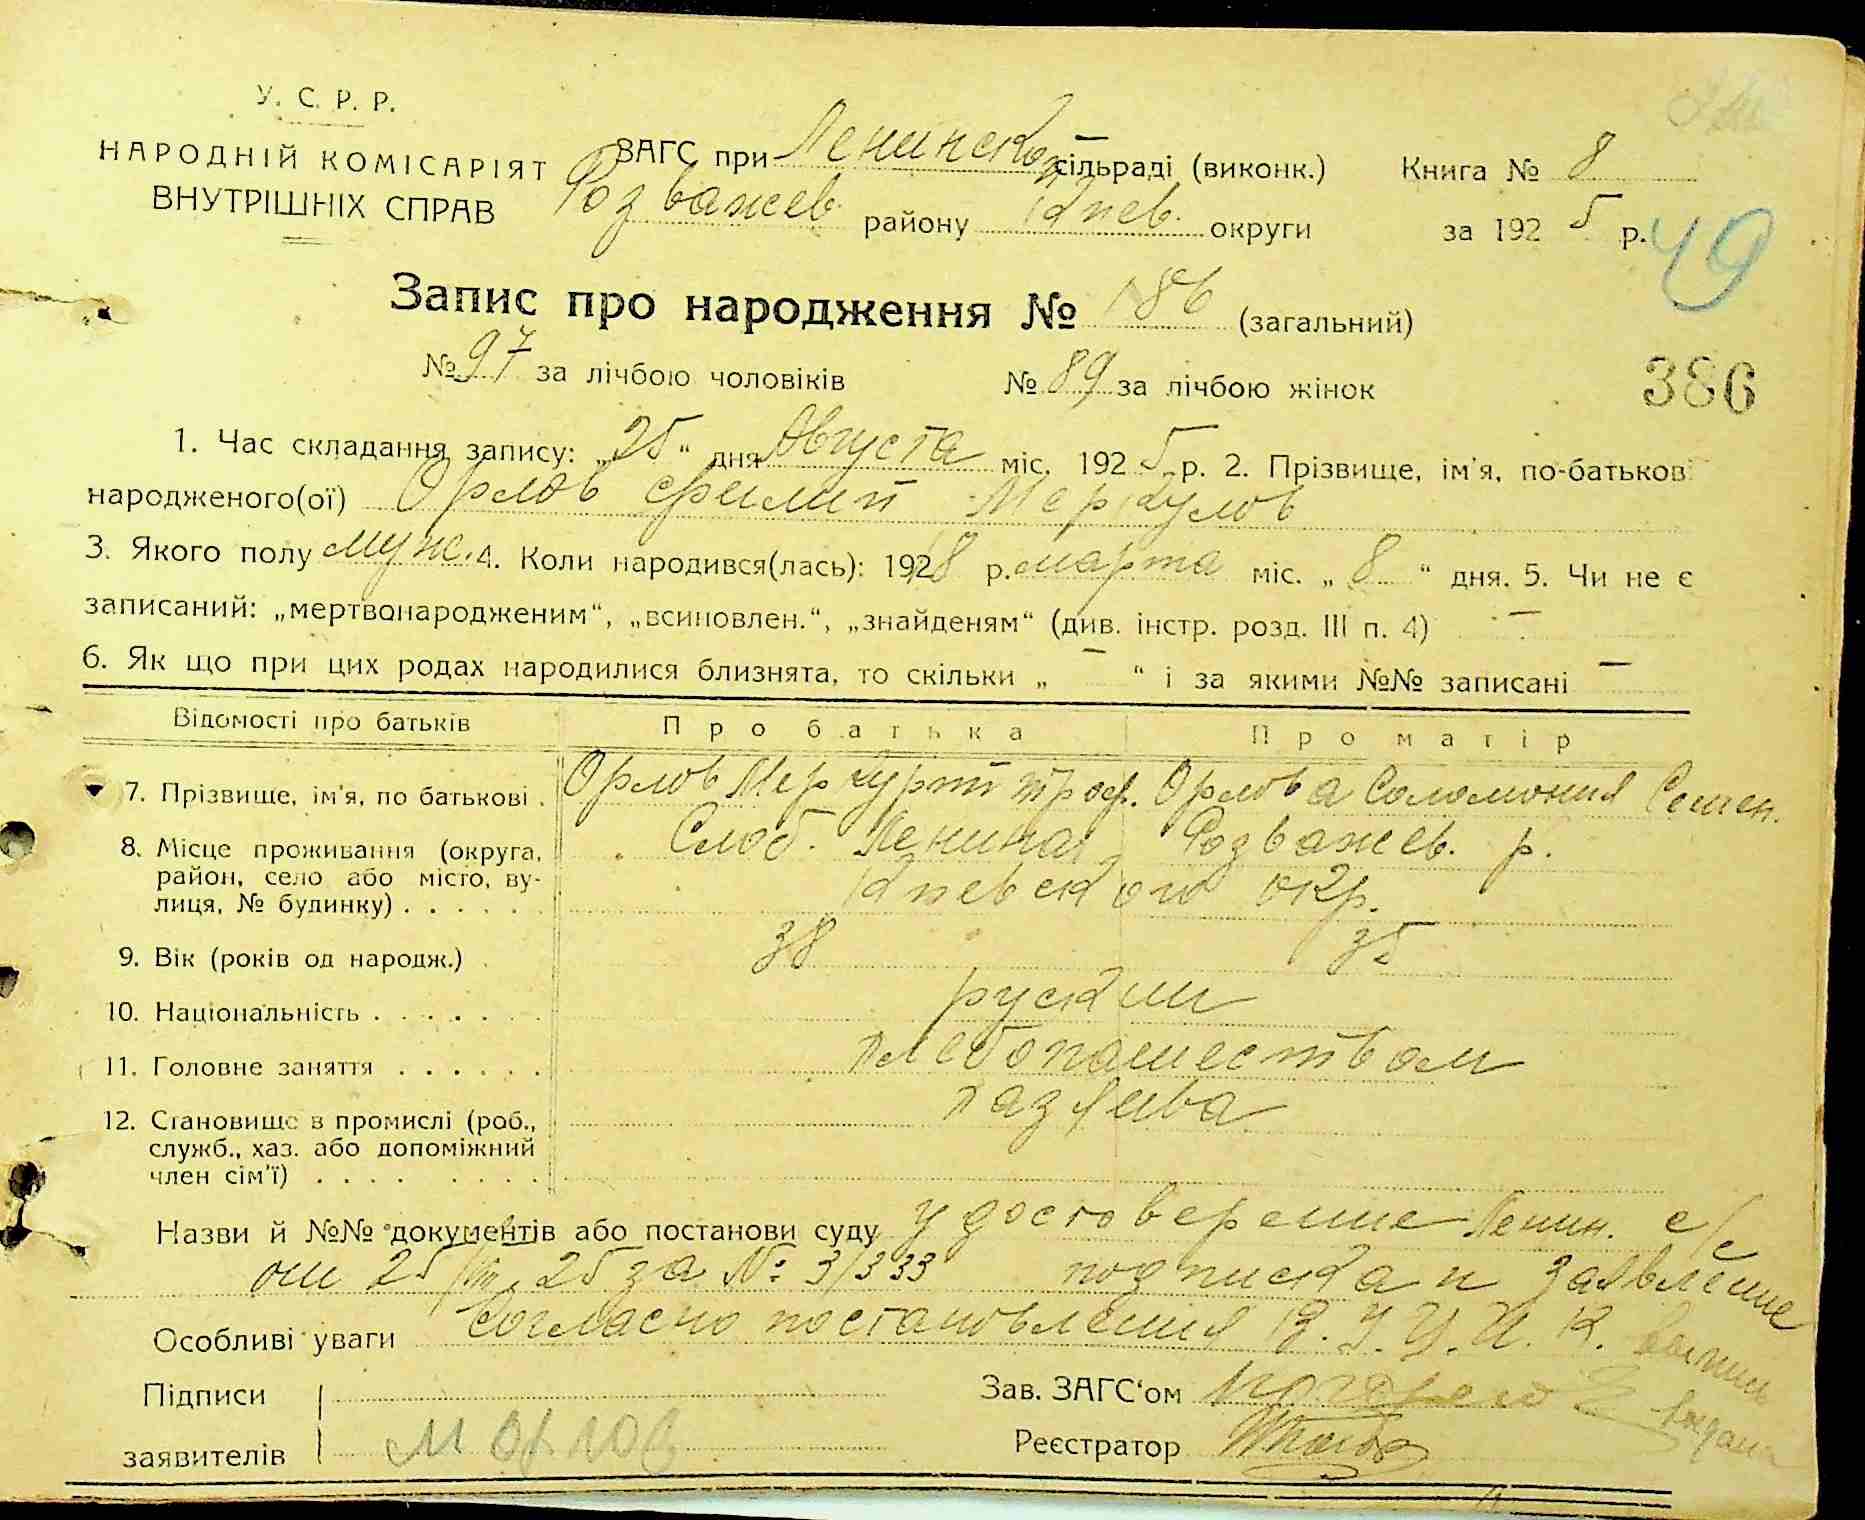 У. С. Р. Р.
НАРОДНІЙ КОМІСАРІЯТ
ВНУТРІШНІХ СПРАВ
ЗАГС при Ленинской сільраді (виконк.) Книга № 8
Розважев. району Киев. округи за 1925 р.
49
Запис про народження № 186 (загальний)
№ 97 за лічбою чоловіків № 89 за лічбою жінок
386
1. Час складання запису: „25“ дня Августа міс. 1925 р. 2. Прізвище, ім'я, по-батькові
народженого(ої) Орлов Филип Меркулов
3. Якого полу муж. 4. Коли народився(лась): 1918 р. марта міс. „8“ дня. 5. Чи не є
записаний: „мертвонародженим“, „всиновлен.“, „знайденям“ (див. інстр. розд. III п. 4) —
6. Як що при цих родах народилися близнята, то скільки „—“ і за якими №№ записані —
Відомості про батьків Про батька Про матір
7. Прізвище, ім'я, по батькові. Орлов Меркурий Троф. Орлова Соломония Семен.
8. Місце проживання (округа, Слоб. Ленина Розважев. р.
район, село або місто, ву- Киевского окр.
лиця, № будинку)......
9. Вік (років од народж.) 38 35
10. Національність....... руский
11. Головне заняття...... хлебопашеством
12. Становище в промислі (роб., хазяива
служб., хаз. або допоміжний
член сім'ї).........
Назви й №№ документів або постанови суду удостоверение Ленин. с/с
от 25/VIII 25 за № 3/333 подписка и заявление
Особливі уваги Согласно постановления В. У. Ц. И. К. выпись
выдана
Підписи Зав. ЗАГС'ом
заявителів М Орлов Реєстратор